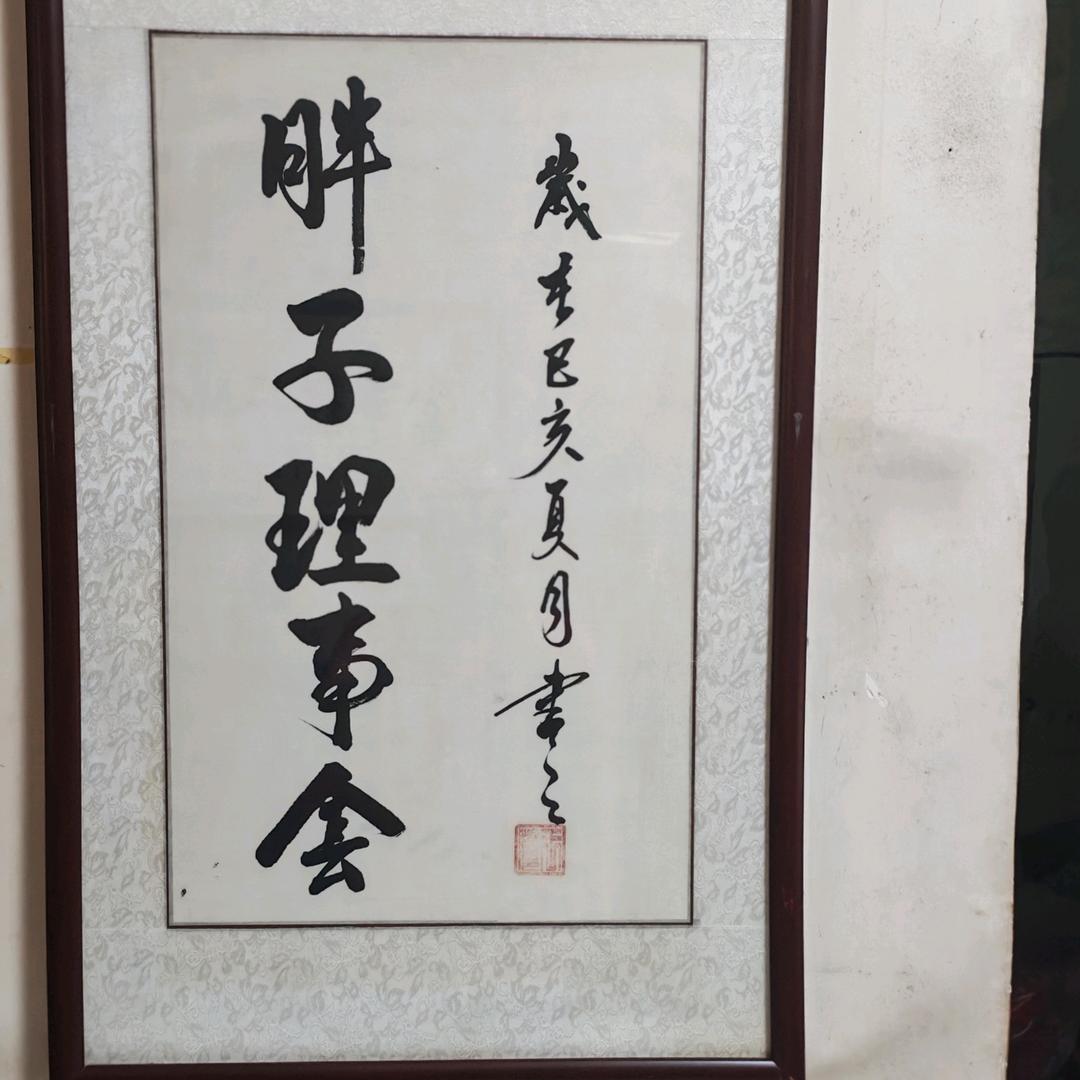 歲在己亥夏月書之
胖子理事会